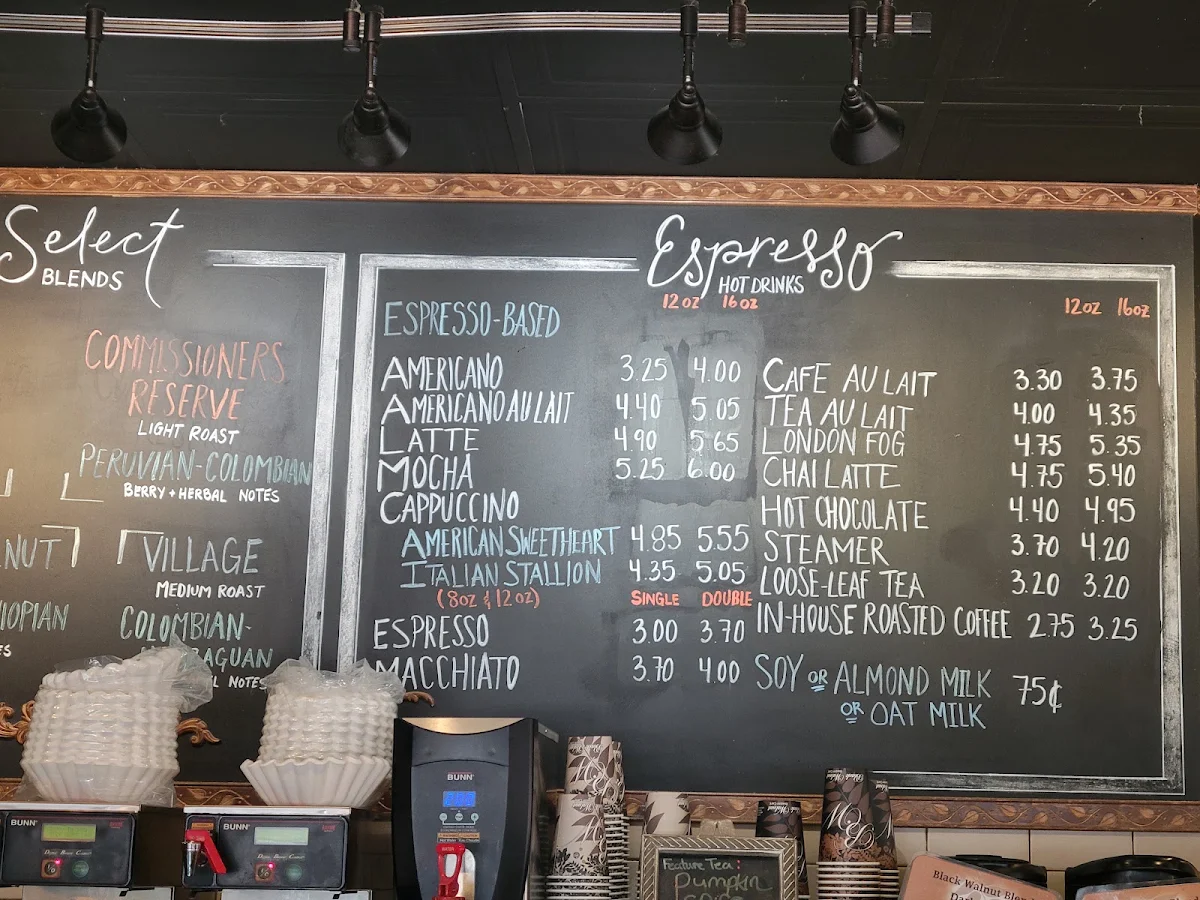 Select
BLENDS
COMMISSIONERS
RESERVE
LIGHT ROAST
PERUVIAN-COLOMBIAN
BERRY + HERBAL NOTES
VILLAGE
MEDIUM ROAST
COLOMBIAN-
NOTES
Espresso
HOT DRINKS
12oz 16oz
12oz 16oz
ESPRESSO-BASED
AMERICANO 3.25 4.00
AMERICANO AU LAIT 4.40 5.05
LATTE 4.90 5.65
MOCHA 5.25 6.00
CAPPUCCINO
AMERICAN SWEETHEART 4.85 5.55
ITALIAN STALLION 4.35 5.05
(8oz & 12oz) SINGLE DOUBLE
ESPRESSO 3.00 3.70
MACCHIATO 3.70 4.00
CAFE AU LAIT 3.30 3.75
TEA AU LAIT 4.00 4.35
LONDON FOG 4.75 5.35
CHAI LATTE 4.75 5.40
HOT CHOCOLATE 4.40 4.95
STEAMER 3.70 4.20
LOOSE-LEAF TEA 3.20 3.20
IN-HOUSE ROASTED COFFEE 2.75 3.25
SOY OR ALMOND MILK 75¢
OR OAT MILK
BUNN
BUNN
BUNN
Feature Tea:
Pumpkin
Black Walnut